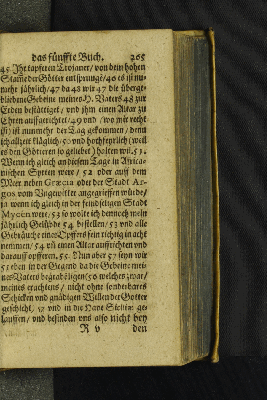 das fünffte Buch. 265
45 Ihr tapfferen Trojaner / von dem hohen
Stamme der Götter entsprungē / 46 es ist nu-
mehr jährlich / 47 da wir die übrige
Gebeine meines H. Vaters 48 zur
Erden bestättiget / und ihm einen Altar zu
Ehren auffgerichtet / 49 und / wo mir recht
ist / ist nunmehr der Tag gekommen / denn
ich allzeit kläglich / 50 und hochfeyrlich (weil
es den Göttern so geliebet) halten wil. 51.
Wenn ich gleich an diesem Tage in Africa-
nischen Syrten were / 52 oder auff dem
Meer neben Græcia oder der Stadt Ar-
gos vom Ungewitter angegrieffen würde /
ja wenn ich gleich in der feindseligen Stadt
Mycen were, 53 so wolte ich dennoch mein
jährlich Gelübde 54 bestellen / 53 und alle
Gebräuche eines Opffers fein richtig in acht
nemmen / 54 uñ einen Altar auffrichten und
darauff opfferen. 55. Nun aber 57 seyn wir
55 eben in der Gegend da die Gebeine mei-
nes Vaters begraben ligen / 56 welches zwar /
meines erachtens / nicht ohne sonderbares
Schicken und gnädigen Willen der Götter
geschicht / 57 und in die Havē Siciliæ ge-
lauffen / und befinden uns also nicht bey
R v den